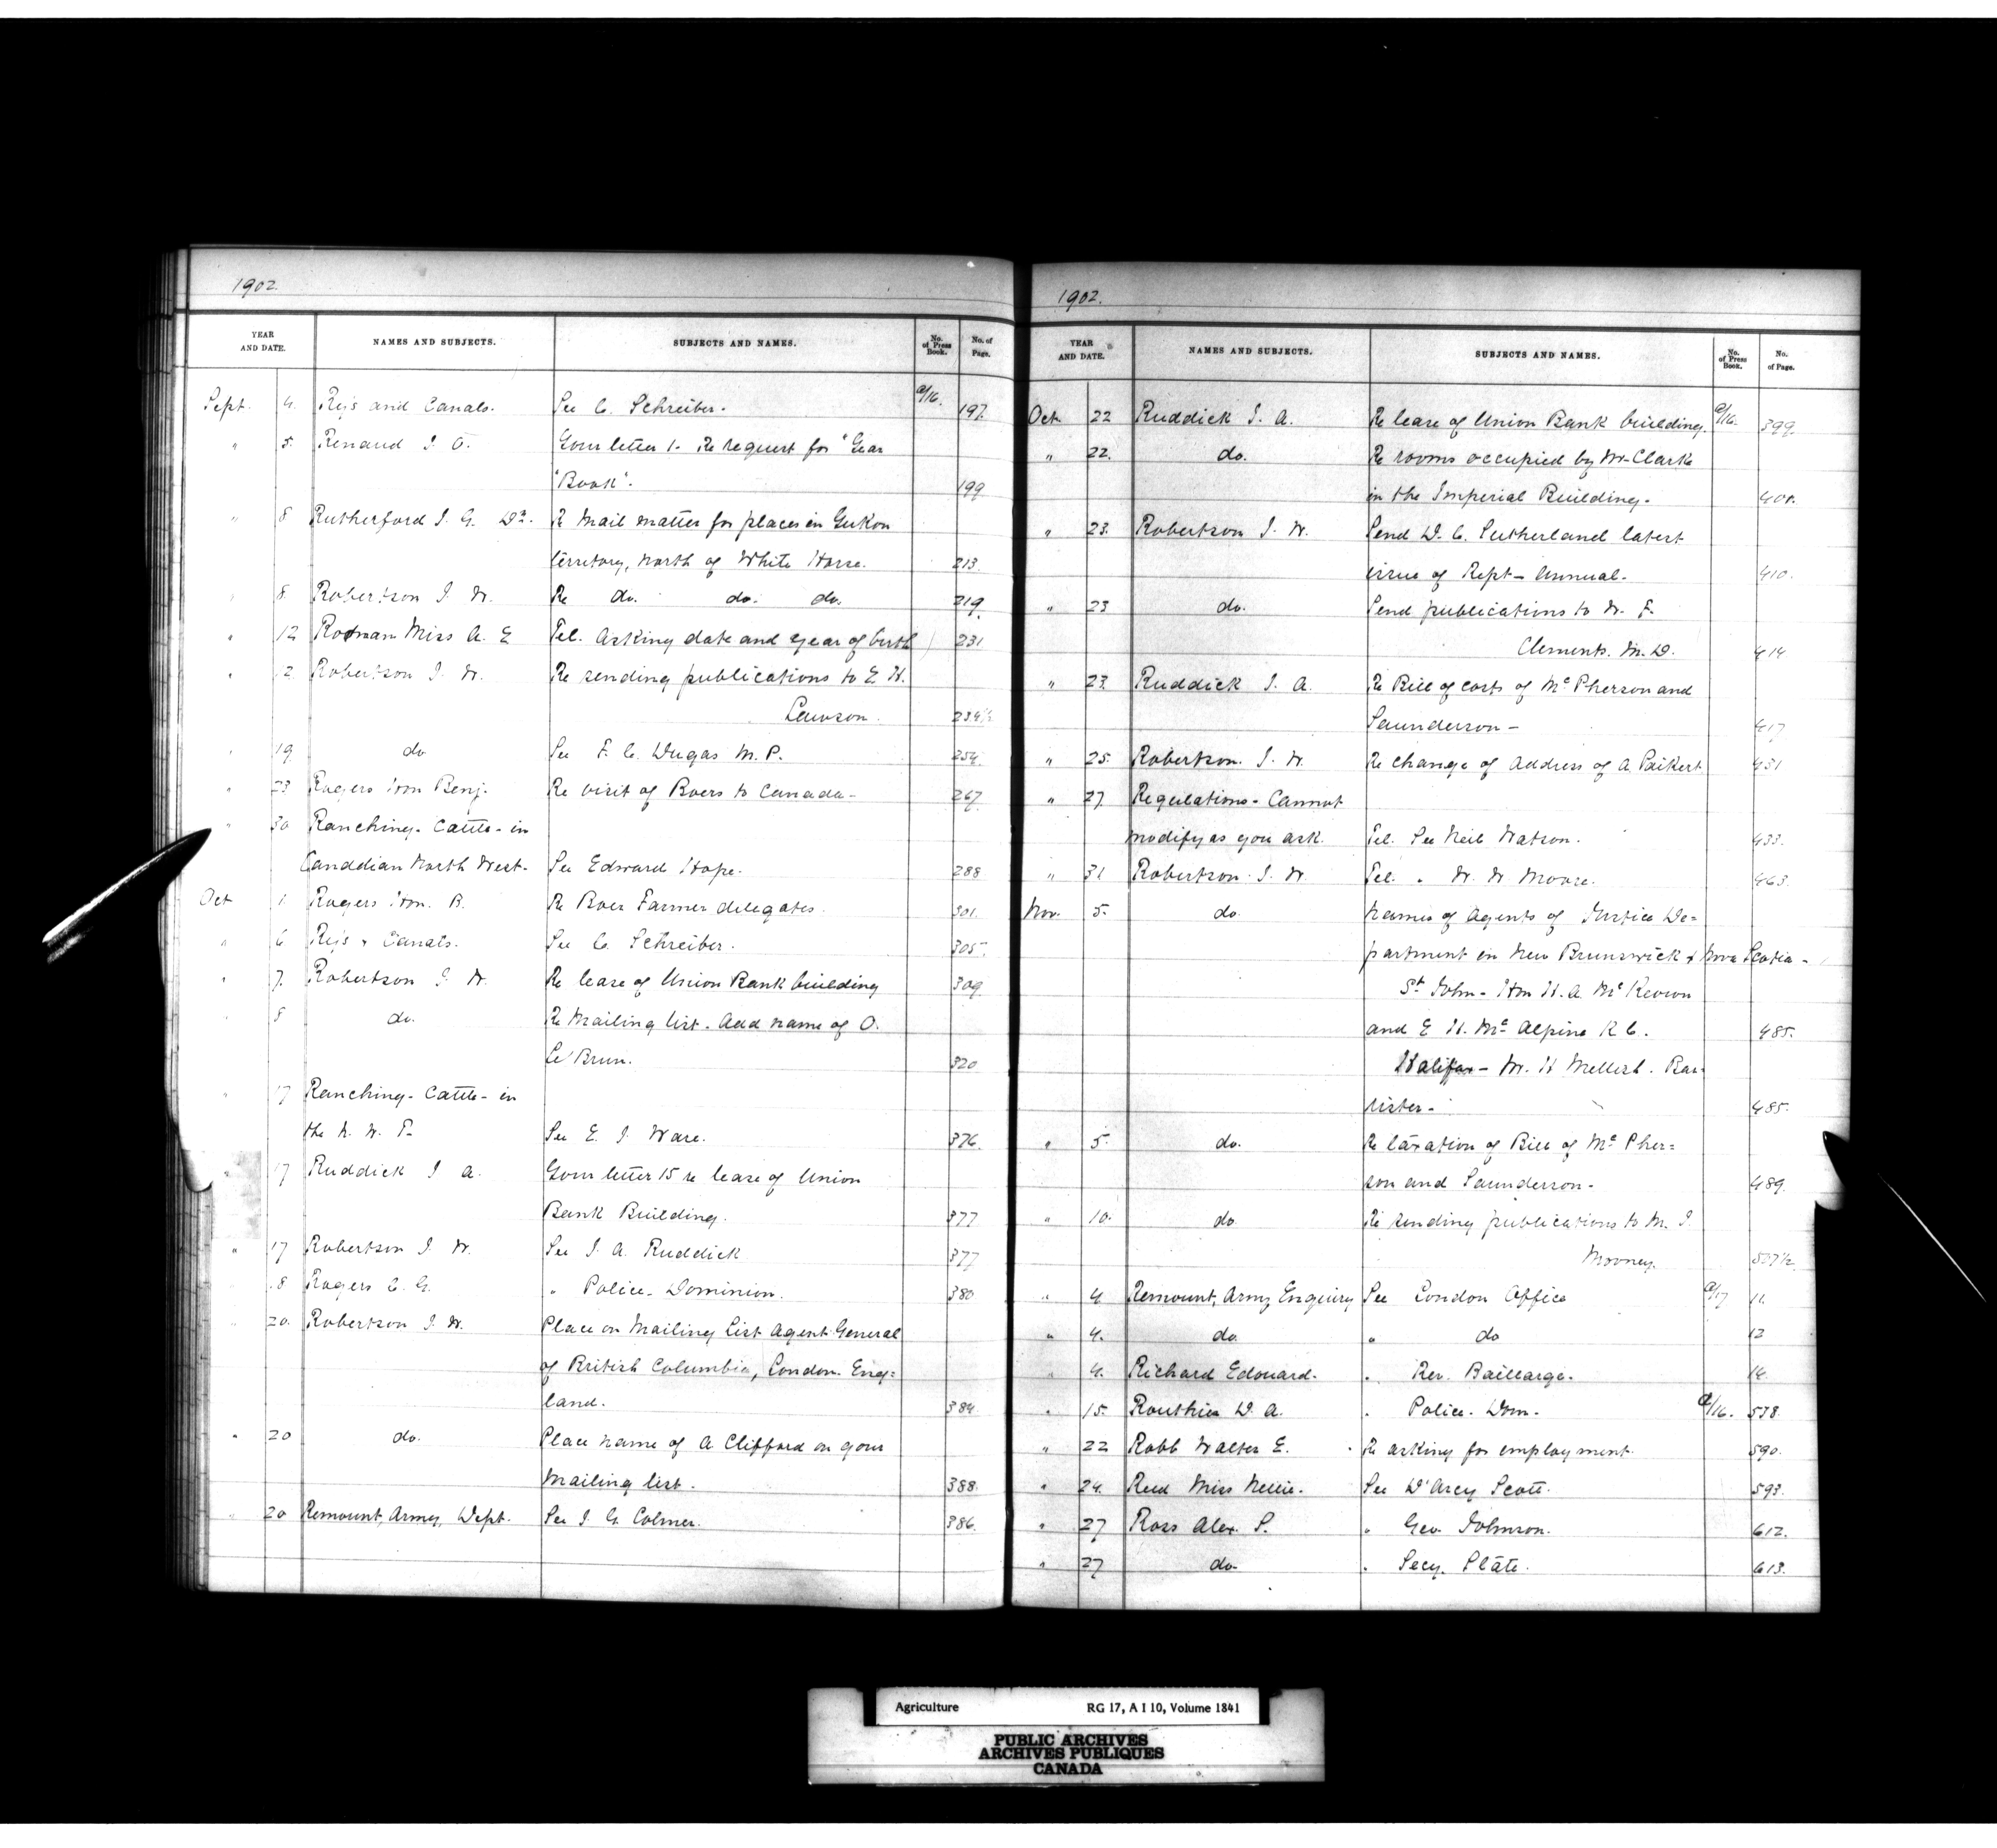 1902.
YEAR AND DATE. NAMES AND SUBJECTS. SUBJECTS AND NAMES. No. of Press Book. No. of Page.
Sept. 4. Rys and Canals. See C. Schreiber. a/16. 197.
" 5. Renaud J. O. Your letter 1- Re request for "Year
"Book". 199
" 8 Rutherford J. G. Dr. Re Mail matter for places in Yukon
territory, north of White Horse. 213.
" 8. Robertson J. W. Re do. do. do. 219.
" 12 Rodman Miss A. E Tel. Asking date and year of birth 231
" 2 Robertson J. W. Re sending publications to E. H.
Lawson. 234½
" 19. do See F. C. Dugas M. P. 254.
" 23 Rogers Hon Benj. Re visit of Boers to Canada- 267.
" 30 Ranching- Cattle- in
Canadian North West- See Edward Hope. 288
Oct 1 Rogers Hon. B. Re Boer Farmer delegates. 301.
" 6 Rys & Canals. See C. Schreiber. 305.
" 7. Robertson J. W. Re lease of Union Bank building 309.
" 8 do. Re Mailing list. Add name of O.
Le Brun. 320
" 17 Ranching- Cattle- in
the N. W. T. See E. J. Ware. 376.
" 17 Ruddick J A. Your letter 15 re lease of Union
Bank Building. 377
" 17 Robertson J. W. See J. A. Ruddick 377
" 8 Rogers C. G. " Police- Dominion. 380
" 20. Robertson J. W. Place on Mailing List Agent General
of British Columbia, London. Eng=
land. 384
" 20 do. Place name of A. Clifford on your
Mailing list. 388.
" 20 Remount, Army, Dept. See J. G. Colmer. 386.
1902.
YEAR AND DATE. NAMES AND SUBJECTS. SUBJECTS AND NAMES. No. of Press Book. No. of Page.
Oct 22 Ruddick J. A. Re lease of Union Bank building. a/16. 399.
" 22. do. Re rooms occupied by Mr Clark
in the Imperial Building.
" 23. Robertson J. W. Send D. C. Sutherland latest
issue of Rept- Annual. 410.
" 23 do. Send publications to W. F.
Clements. M. D. 414
" 23. Ruddick J. A. Re Bill of costs of Mc Pherson and
Saunderson- 417
" 25. Robertson. J. W. Re change of Address of A. Paikert 431
" 27 Regulations- Cannot
modify as you ask. Tel. See Neil Watson. 433.
" 31 Robertson. J. W. Tel. " W. W. Moore. 463.
Nov. 5. do. Names of Agents of Justice De=
partment in New Brunswick & Nova Scotia-
St. John- Hon H. A. Mc Keown
and E H. Mc Alpine K C. 485.
Halifax- Mr. H Mellish. Bar-
rister- 485.
" 5. do. Re taxation of Bill of Mc Pher=
son and Saunderson- 489.
" 10. do. Re sending publications to M. J.
Mooney. 507½
" 4 Remount, Army Enquiry See London Office a/17 11.
" 4. do. " do 12
" 4. Richard Edouard. " Rev. Baillarge. 14.
" 15. Routhier D. A. " Police. Dom. a/16. 538.
" 22 Robb Walter E. Re asking for employment. 590.
" 24. Reid Miss Nellie. See D'Arcy Scott. 593.
" 27 Ross Alex. P. " Geo Johnson. 612.
" 27 do. " Secy. State. 613.
Agriculture RG 17, A I 10, Volume 1841
PUBLIC ARCHIVES
ARCHIVES PUBLIQUES
CANADA